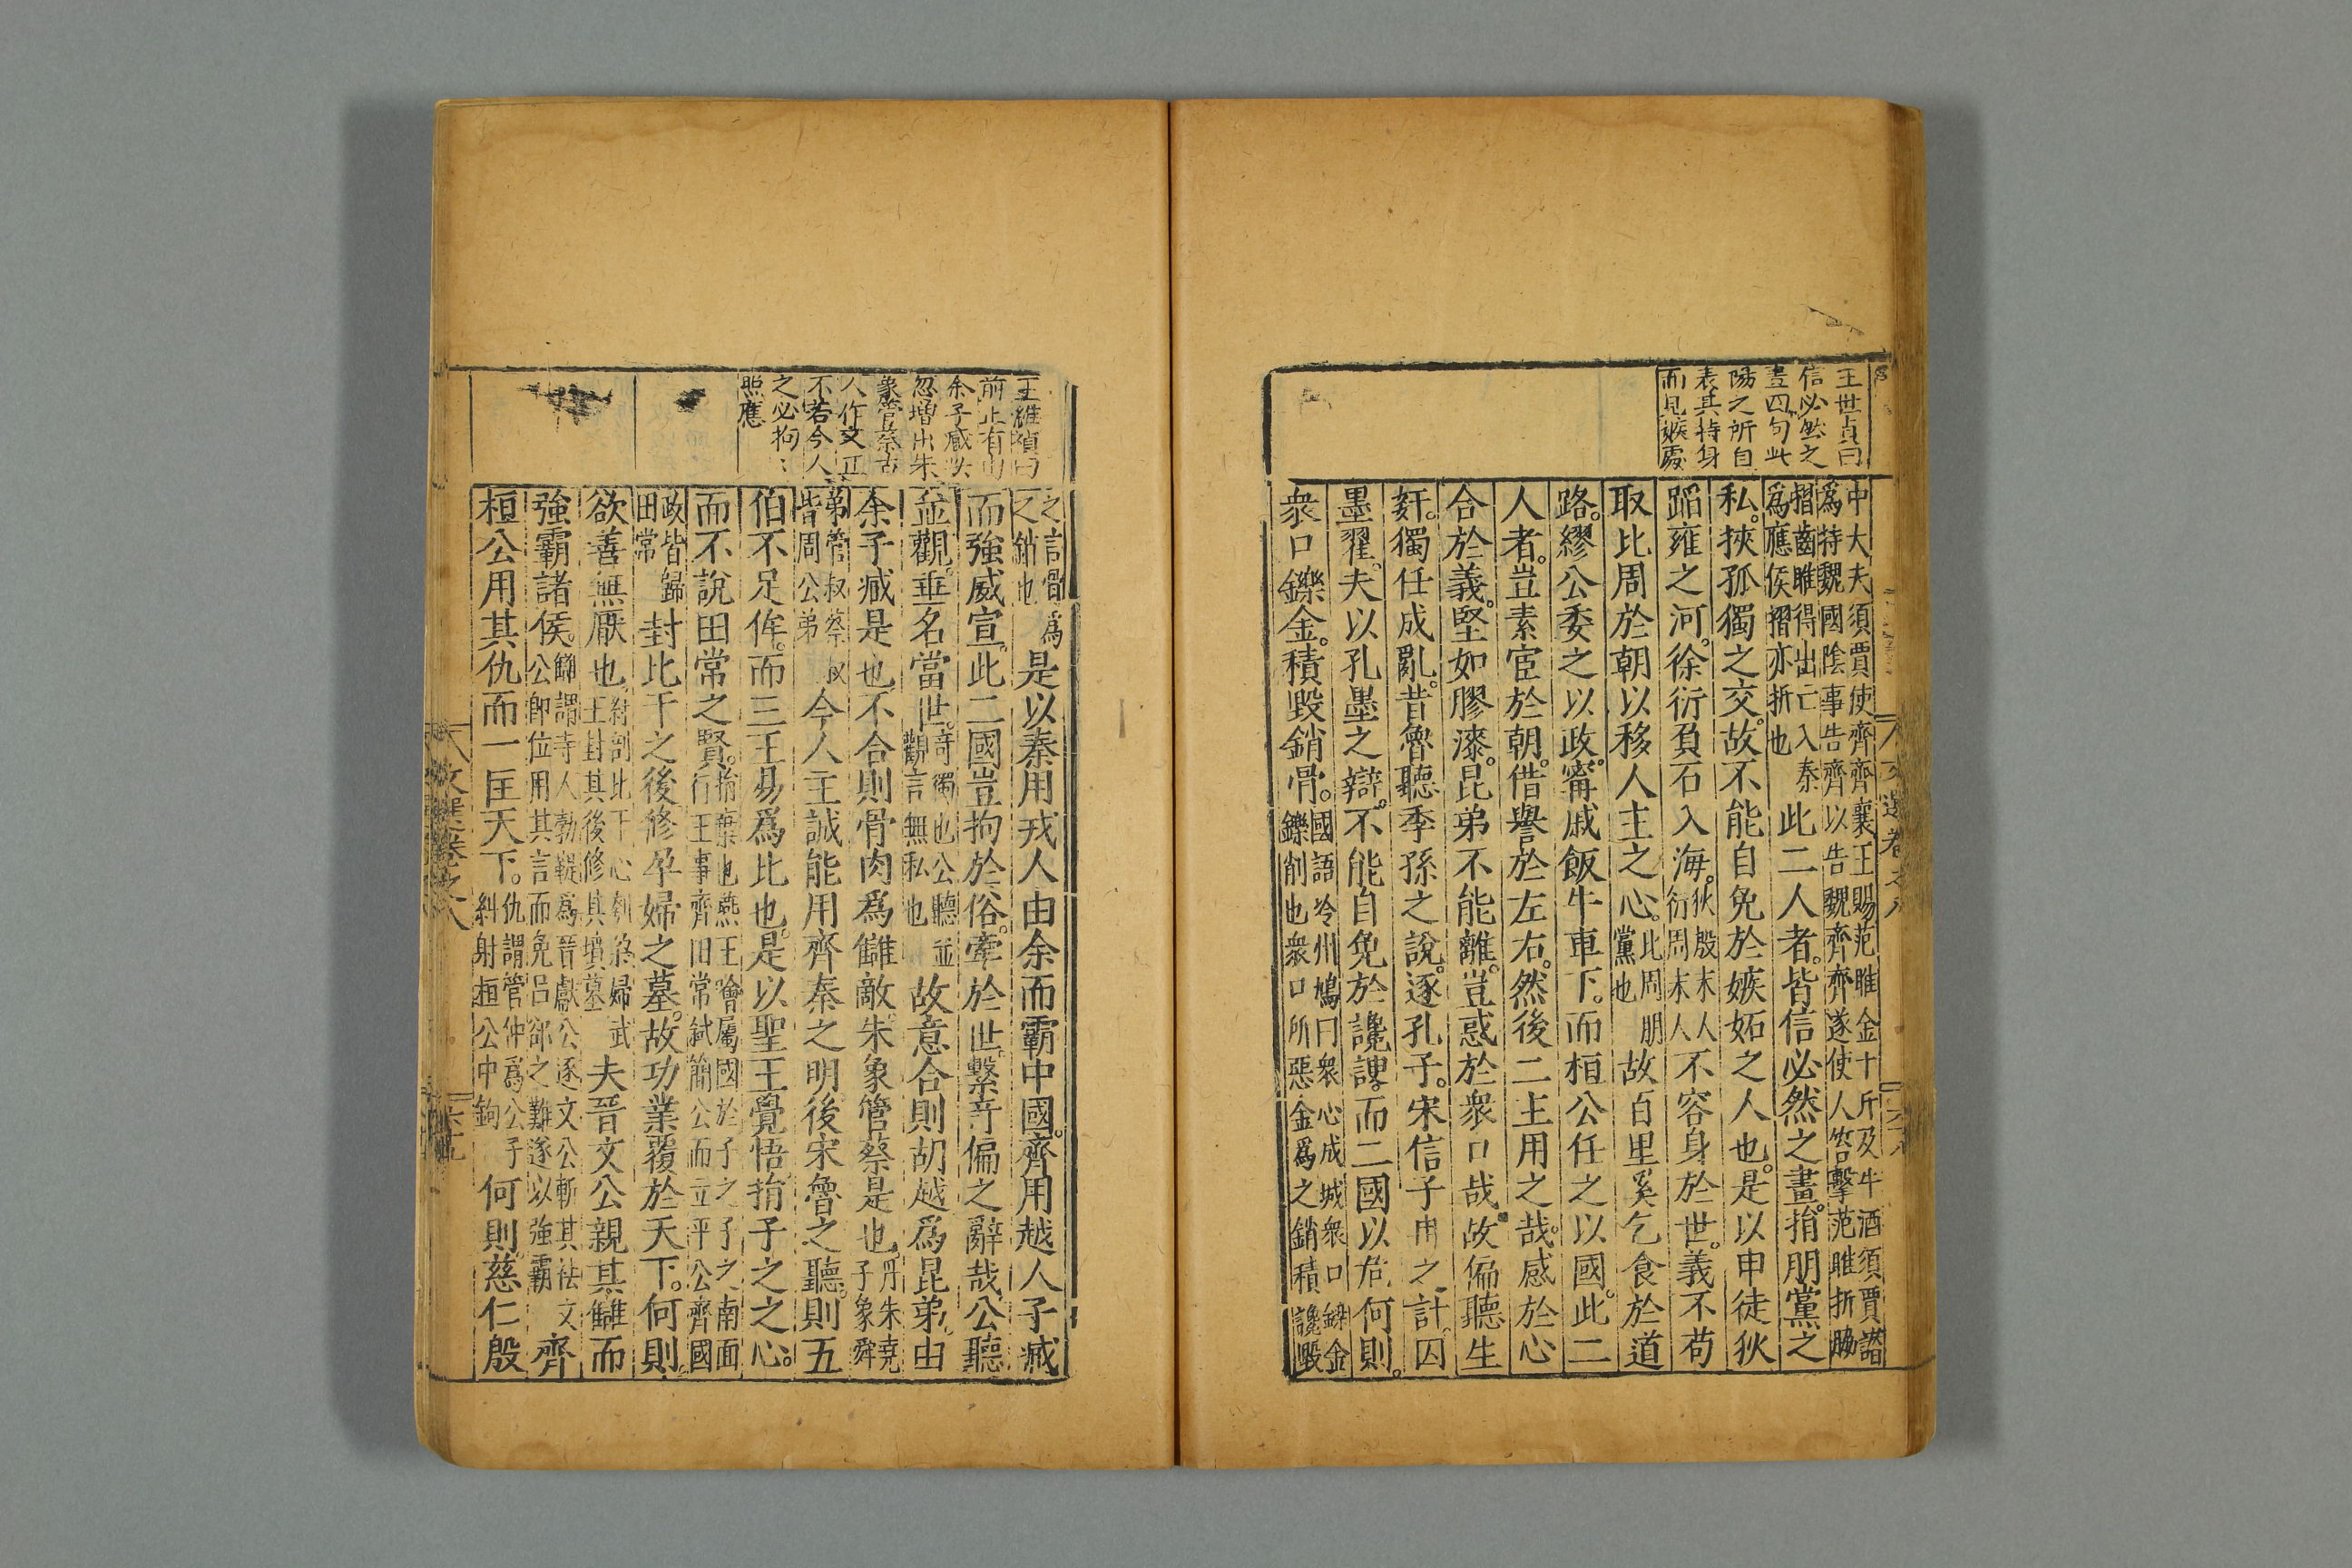 王世貞曰
信必然之
畫四句此
陽之所自
表其持身
而見嫉處
中大夫須賈使齊齊襄王賜范睢金十斤及牛酒須賈譖
爲持魏國陰事告齊以告魏齊齊遂使人笞擊范睢折脇
摺齒睢得出亡入秦
爲應侯摺亦折也
此二人者。皆信必然之畫。捐朋黨之
私。挾孤獨之交。故不能自免於嫉妬之人也。是以申徒狄
蹈雍之河。徐衍負石入海。
狄殷末人
衍周末人
不容身於世。義不苟
取比周於朝以移人主之心。
比周朋
黨也
故百里奚乞食於道
路。繆公委之以政。甯戚飯牛車下。而桓公任之以國。此二
人者。豈素宦於朝。借譽於左右。然後二主用之哉。感於心
合於義。堅如膠漆。昆弟不能離。豈惑於衆口哉。故偏聽生
奸。獨任成亂。昔魯聽季孫之說。逐孔子。宋信子冉之計。囚
墨翟。夫以孔墨之辯。不能自免於讒諛。而二國以危。何則。
衆口鑠金。積毀銷骨。
國語泠州鳩曰衆心成城衆口鑠金
鑠削也衆口所惡金爲之銷積讒毀
文選卷之八
王維禎曰
前止有由
余子臧以
忽増出朱
象管蔡古
人作文正
不若今人
之必拘〻
照應
之言骨爲
之銷也
是以秦用戎人由余而霸中國。齊用越人子臧
而強威宣。此二國豈拘於俗。牽於世。繫奇偏之辭哉。公聽
並觀。垂名當世。
奇獨也公聽並
觀言無私也
故意合則胡越爲昆弟。由
余子臧是也。不合則骨肉爲讎敵。朱象管蔡是也。
丹朱堯
子象舜
弟管叔蔡叔
皆周公弟
今人主誠能用齊秦之明。後宋魯之聽。則五
伯不足侔。而三王易爲比也。是以聖王覺悟。捐子之之心。
而不說田常之賢。
捐棄也燕王噲屬國於子之子之南面
行王事齊田常弑簡公而立平公齊國
政皆歸
田常
封比干之後修孕婦之墓。故功業覆於天下。何則。
欲善無厭也。
紂剖比干心刳孕婦武
王封其後修其墳墓
夫晉文公親其讎而
強霸諸侯。
讎謂寺人勃鞮爲晉獻公逐文公斬其袪文
公卽位用其言而免呂郤之難遂以強霸
齊
桓公用其仇而一匡天下。
仇謂管仲爲公子
糾射桓公中鉤
何則。慈仁殷
文選卷之八